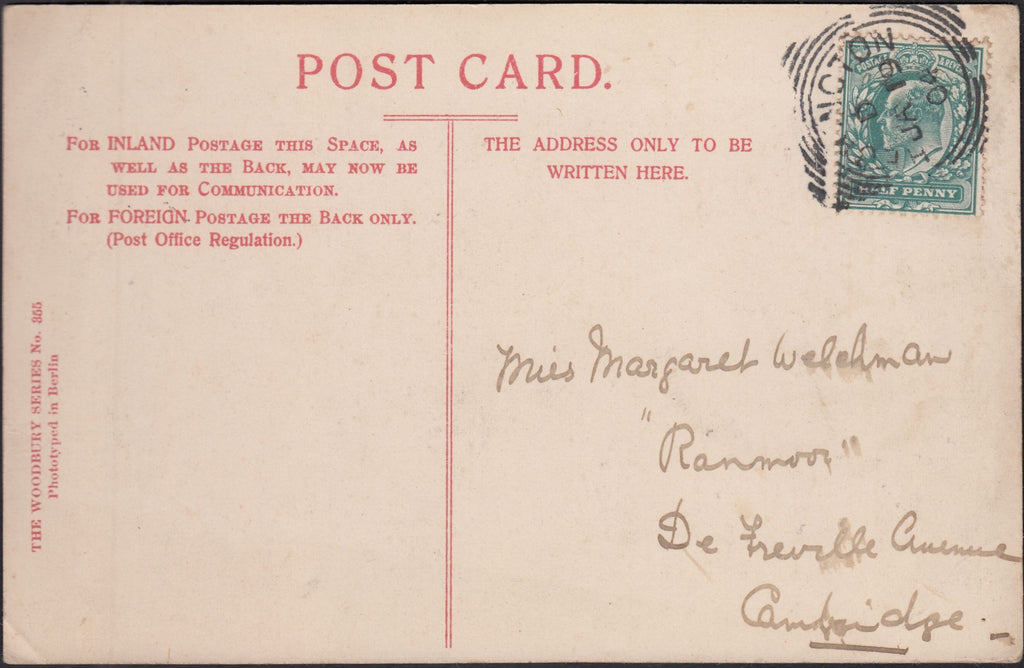 POST CARD.
FOR INLAND POSTAGE THIS SPACE, AS
WELL AS THE BACK, MAY NOW BE
USED FOR COMMUNICATION.
FOR FOREIGN POSTAGE THE BACK ONLY.
(Post Office Regulation.)
THE ADDRESS ONLY TO BE
WRITTEN HERE.
POSTAGE & REVENUE
HALF PENNY
Miss Margaret Welchman
"Ranmoor"
De Freville Avenue
Cambridge
THE WOODBURY SERIES No. 355
Phototyped in Berlin